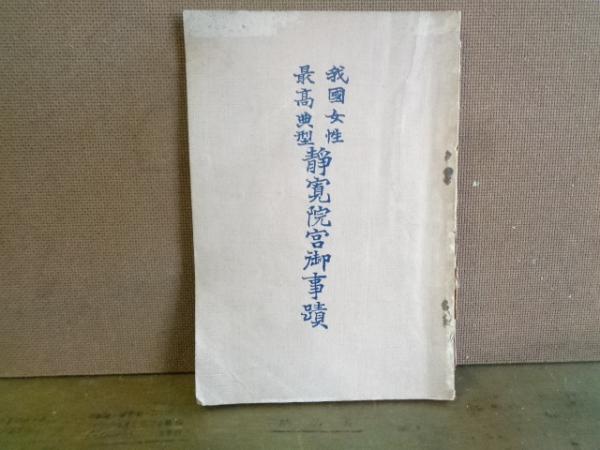 我國女性
最高典型
靜寛院宮御事蹟